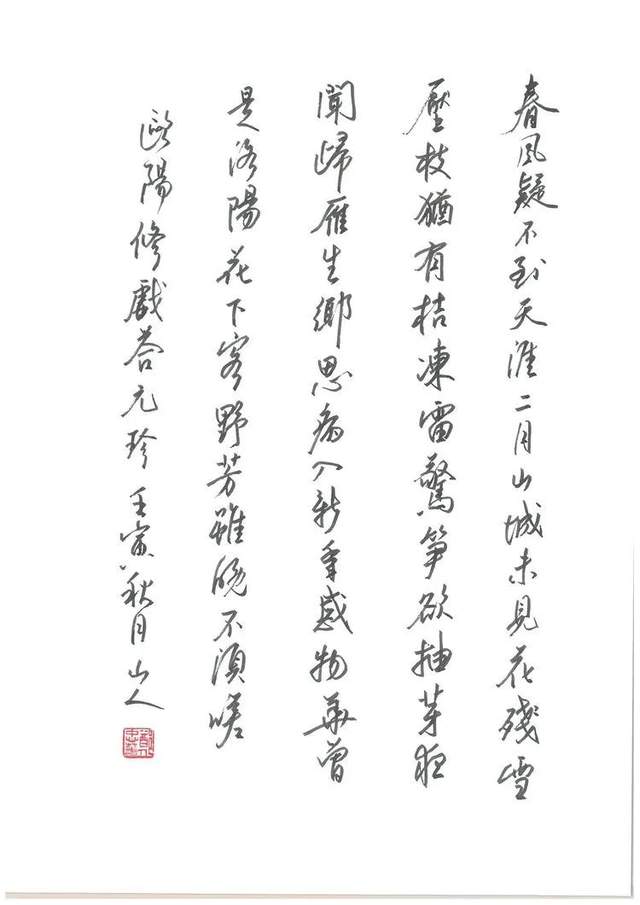 春風疑不到天涯二月山城未見花殘雪
壓枝猶有桔凍雷驚笋欲抽芽夜
聞歸雁生鄉思病入新年感物華曾
是洛陽花下客野芳雖晚不須嗟
歐陽修戲答元珍 壬寅秋月山人